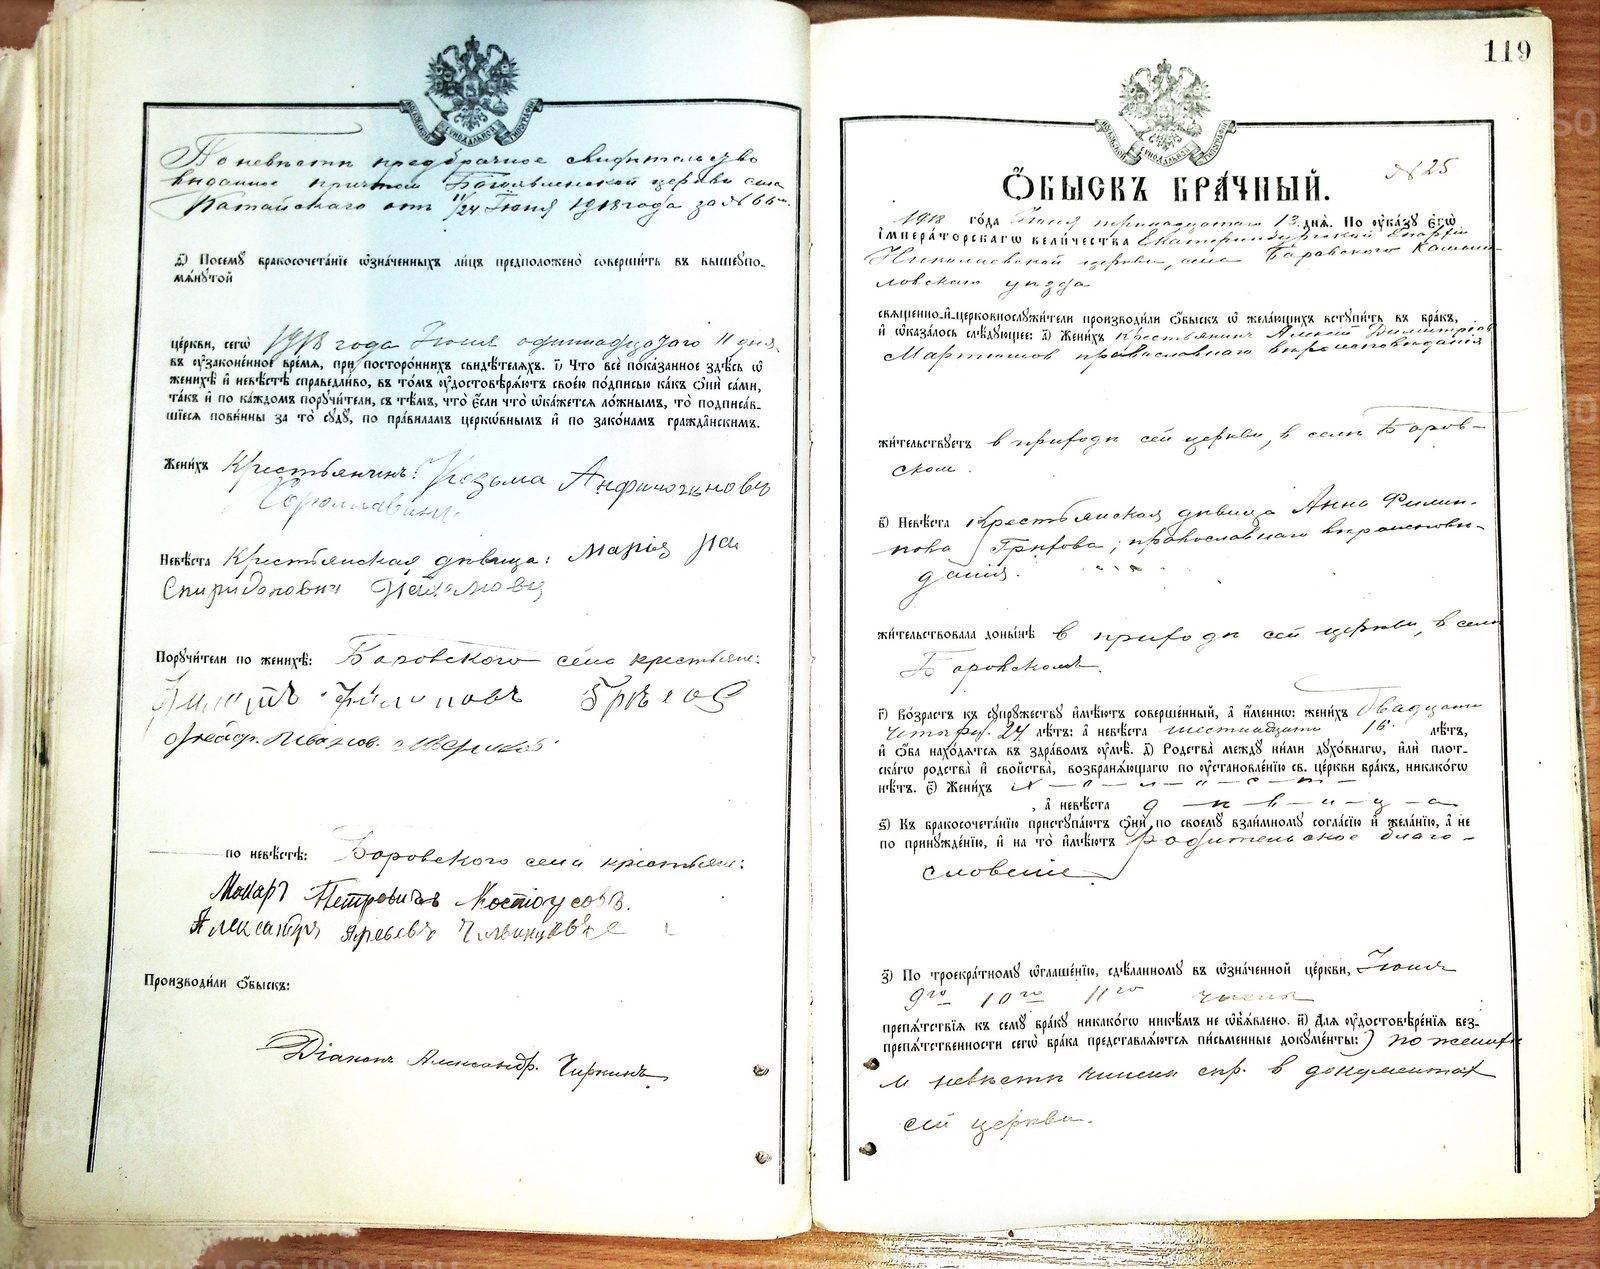 По невѣстѣ предбрачное свидѣтельство
выданное причтомъ Богоявленской церкви села
Катайскаго отъ 11/24 Iюня 1918 года за № 66
ѳ҃) Посему бракосочетанїе ѡзначенныхъ лицъ предположено совершить въ вышеупо-
мѧнутой
церкви, сегѡ 1918 года Iюня одиннадцатаго 11 дня
въ узаконенное время, при постороннихъ свидѣтеляхъ. і҃) Что все показанное здѣсь ѡ
женихѣ и невѣстѣ справедливо, въ томъ удостовѣряютъ своею подписью какъ они сами,
такъ и по каждомъ поручители, съ тѣмъ, что если что ѡкажется ложнымъ, то подписав-
шїеся повинны за то суду, по правиламъ церковнымъ и по законамъ гражданскимъ.
Женихъ Крестьянинъ: Козьма
Невѣста Крестьянская дѣвица: Марія
Спиридоновна
Поручители по женихѣ: Боровского села крестьяне:
Филиповъ
Иванов.
по невѣстѣ: Боровского села крестьяне:
Макаръ Петровичъ Костоусовъ.
Александръ
Производили обыскъ:
Діаконъ Александр. Чиркинъ
119
МОСКОВСКОЙ СѴНОДАЛЬНОЙ ТИПОГРАФІИ
Обыскъ брачный.
№ 25
1918 года Iюня тринадцатого 13 дня. По указу Егѡ
Императорскагѡ величества Екатеринбургской Епархіи
Николаевской церкви, села Боровского Камыш-
ловскаго уѣзда
священно-и-церковнослужители производили обыскъ ѡ желающихъ вступить въ бракъ,
и ѡказалось слѣдующее: а҃) Женихъ крестьянинъ Алексѣй Димитріевъ
Мартюшов православнаго вѣроисповѣданія
жительствуетъ в приходѣ сей церкви, в селѣ Боров-
ском.
в҃) Невѣста Крестьянская дѣвица Анна Филип-
пова Грехова, православнаго вѣроисповѣ-
данія.
жительствовала донынѣ в приходѣ сей церкви, в селѣ
Боровскомъ.
г҃) Возрастъ къ супружеству имѣютъ совершенный, а именно: женихъ двадцати
четыр. 24 лѣтъ: а невѣста шестнадцати 16 лѣтъ,
и оба находятся въ здравомъ умѣ. д҃) Родства между ними духовнагѡ, или плот-
скагѡ родства и свойства, возбраняющагѡ по установленїю св. церкви бракъ, никакогѡ
нѣтъ. е҃) Женихъ х-о-л-о-с-т-
, а невѣста д-ѣ-в-и-ц-а
ѕ҃) Къ бракосочетанїю приступаютъ они по своему взаимному согласїю и желанїю, а не
по принужденїю, и на то имѣютъ родительское благо-
словеніе
з҃) По троекратному ѡглашенїю, сдѣланному въ ѡзначенной церкви, Iюня
9го 10го 11го числа
препятствїя къ сему браку никакогѡ никѣмъ не ѡбъявлено. и҃) Для удостовѣренїя без-
препятственности сегѡ брака представляются письменные документы: по женихѣ
и невѣстѣ числа спр. в документах
сей церкви.